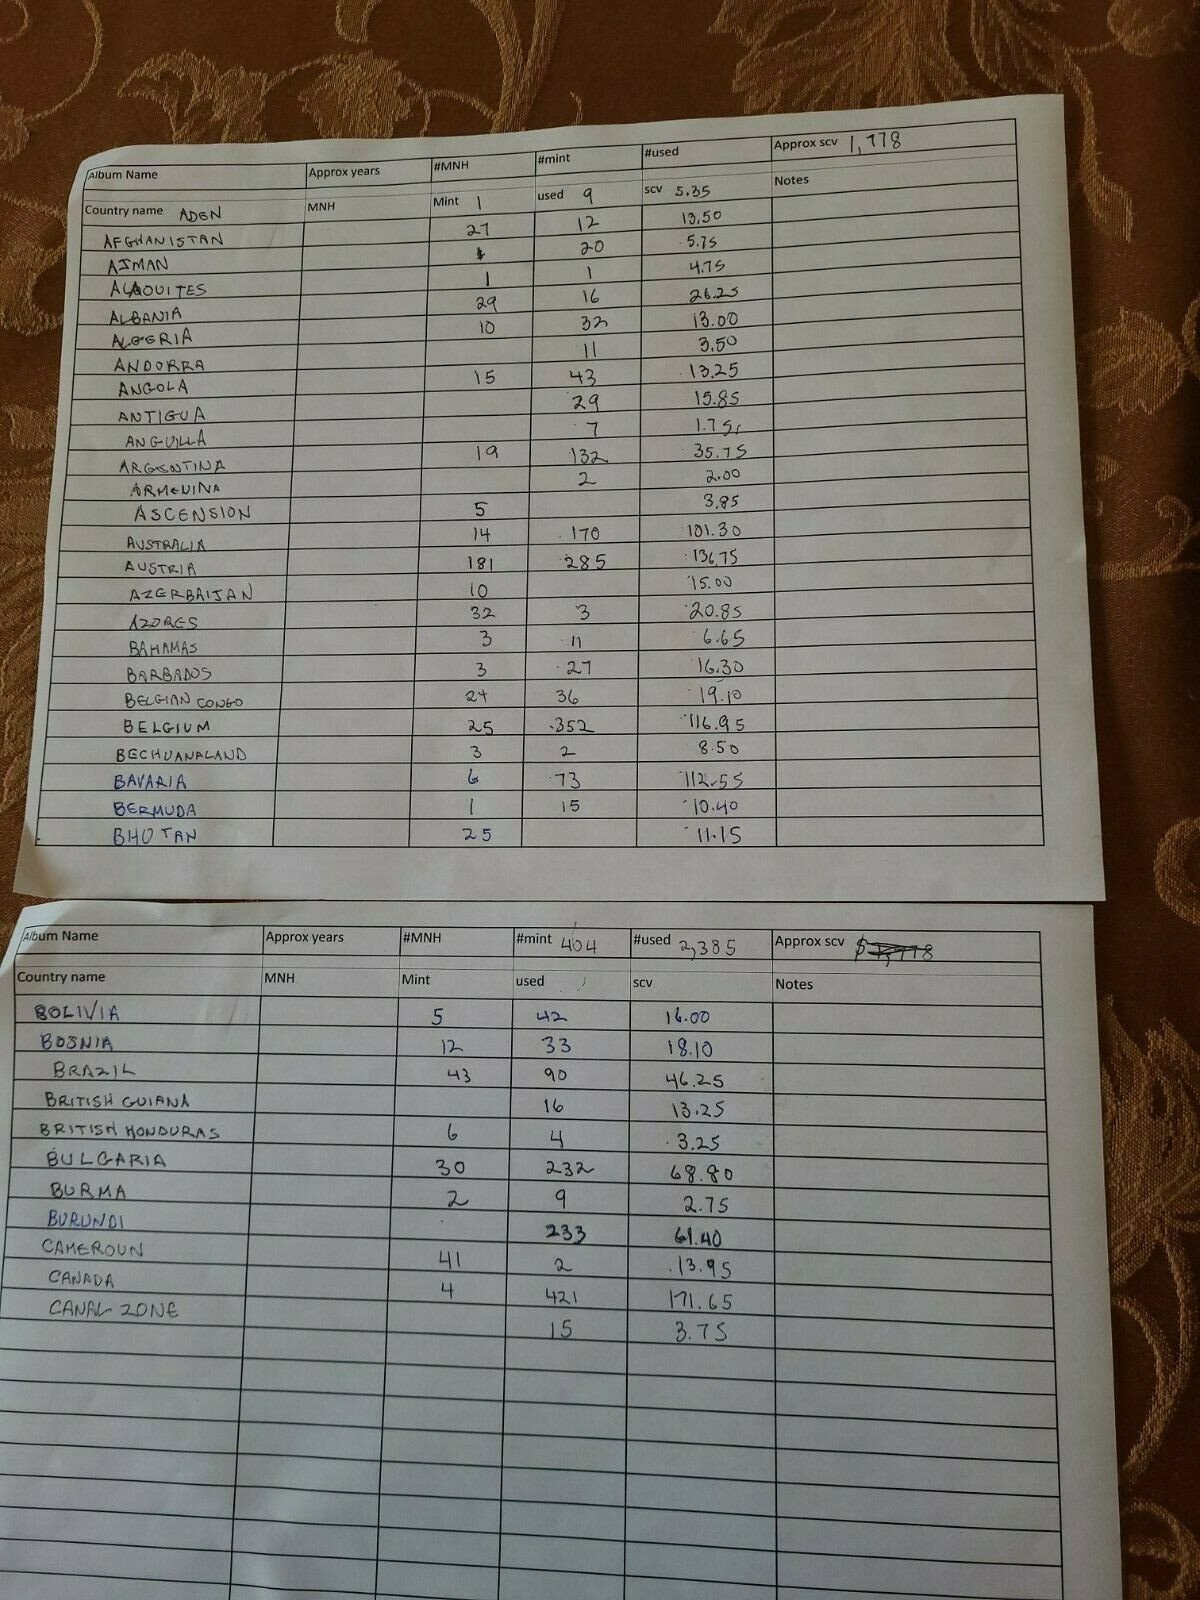 Album Name Approx years #MNH #mint #used Approx scv 1,778
Country name ADEN MNH Mint 1 used 9 scv 5.35 Notes
AFGHANISTAN 27 12 13.50
AJMAN 20 5.75
ALAOUITES 1 1 4.75
ALBANIA 29 16 26.25
ALGERIA 10 32 13.00
ANDORRA 11 3.50
ANGOLA 15 43 13.25
ANTIGUA 29 15.85
ANGUILLA 7 1.75
ARGENTINA 19 132 35.75
ARMENINA 2 2.00
ASCENSION 5 3.85
AUSTRALIA 14 170 101.30
AUSTRIA 181 285 136.75
AZERBAIJAN 10 15.00
AZORES 32 3 20.85
BAHAMAS 3 11 6.65
BARBADOS 3 27 16.30
BELGIAN CONGO 24 36 19.10
BELGIUM 25 352 116.95
BECHUANALAND 3 2 8.50
BAVARIA 6 73 112.55
BERMUDA 1 15 10.40
BHOTAN 25 11.15
Album Name Approx years #MNH #mint 404 #used 2,385 Approx scv
Country name MNH Mint used scv Notes
BOLIVIA 5 42 16.00
BOSNIA 12 33 18.10
BRAZIL 43 90 46.25
BRITISH GUIANA 16 13.25
BRITISH HONDURAS 6 4 3.25
BULGARIA 30 232 68.80
BURMA 2 9 2.75
BURUNDI 233 61.40
CAMEROUN 41 2 13.95
CANADA 4 421 171.65
CANAL ZONE 15 3.75